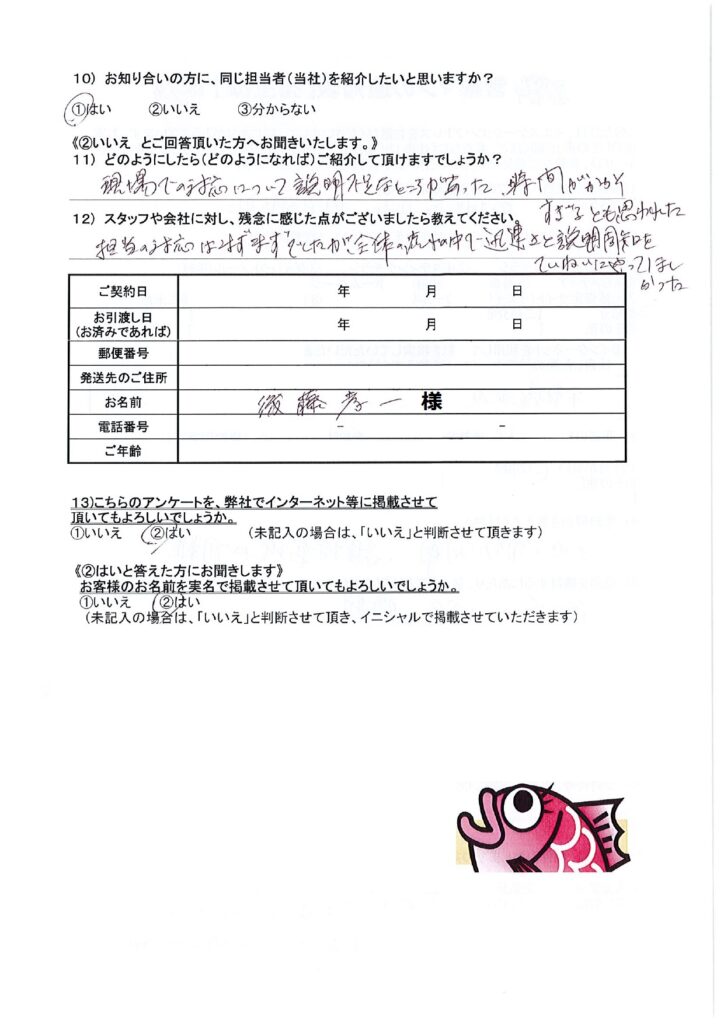 10) お知り合いの方に、同じ担当者(当社)を紹介したいと思いますか?
①はい ②いいえ ③分からない
《②いいえ とご回答頂いた方へお聞きいたします。》
11) どのようにしたら(どのようになれば)ご紹介して頂けますでしょうか?
現場での対応について説明不足なところがあった、時間がかかり
すぎるとも思われた
12) スタッフや会社に対し、残念に感じた点がございましたら教えてください。
担当の対応はまずまずでしたが、全体の流れの中で迅速さと説明周知を
ていねいにやってほし
かった
ご契約日 年 月 日
お引渡し日
(お済みであれば) 年 月 日
郵便番号
発送先のご住所
お名前 後藤孝一 様
電話番号 − −
ご年齢
13)こちらのアンケートを、弊社でインターネット等に掲載させて
頂いてもよろしいでしょうか。
①いいえ ②はい (未記入の場合は、「いいえ」と判断させて頂きます)
《②はいと答えた方にお聞きします》
お客様のお名前を実名で掲載させて頂いてもよろしいでしょうか。
①いいえ ②はい
(未記入の場合は、「いいえ」と判断させて頂き、イニシャルで掲載させていただきます)